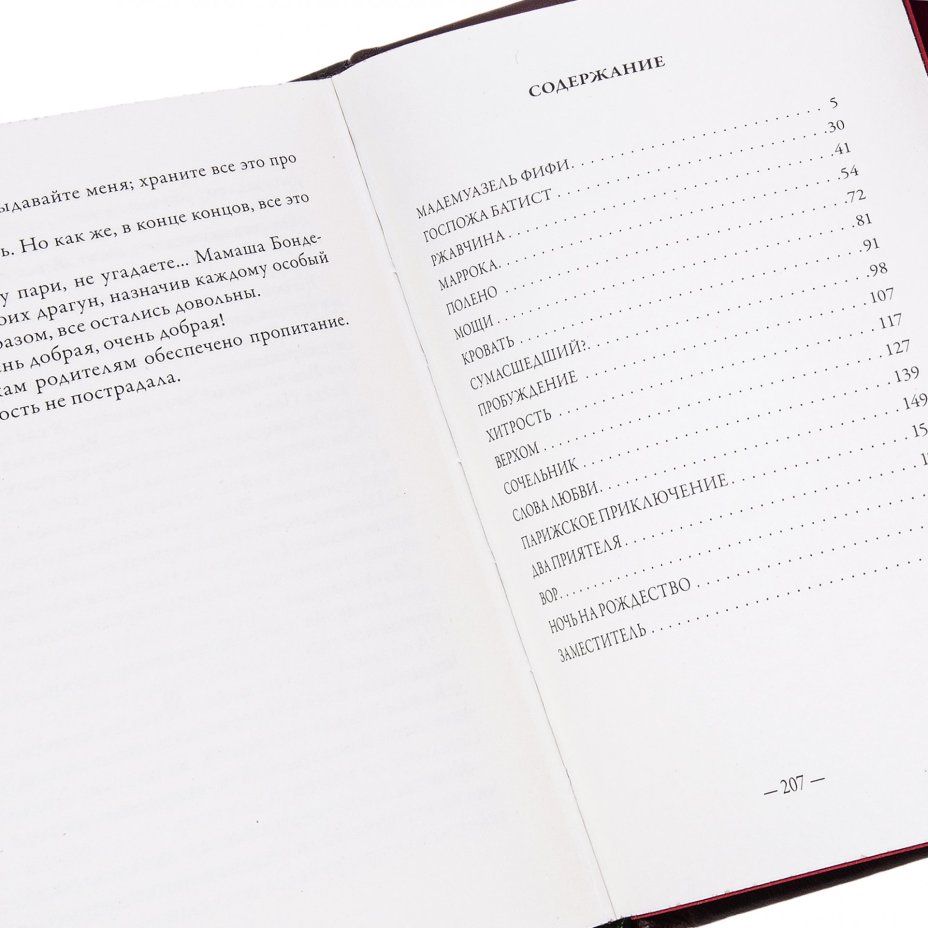 ыдавайте меня; храните все это про
ь. Но как же, в конце концов, все это
у пари, не угадаете... Мамаша Бонде-
оих драгун, назначив каждому особый
разом, все остались довольны.
нь добрая, очень добрая!
кам родителям обеспечено пропитание.
ость не пострадала.
СОДЕРЖАНИЕ
МАДЕМУАЗЕЛЬ ФИФИ. 5
ГОСПОЖА БАТИСТ 30
РЖАВЧИНА 41
МАРРОКА. 54
ПОЛЕНО 72
МОЩИ 81
КРОВАТЬ 91
СУМАСШЕДШИЙ?. 98
ПРОБУЖДЕНИЕ 107
ХИТРОСТЬ 117
ВЕРХОМ 127
СОЧЕЛЬНИК 139
СЛОВА ЛЮБВИ. 149
ПАРИЖСКОЕ ПРИКЛЮЧЕНИЕ 15
ДВА ПРИЯТЕЛЯ
ВОР.
НОЧЬ НА РОЖДЕСТВО
ЗАМЕСТИТЕЛЬ
— 207 —